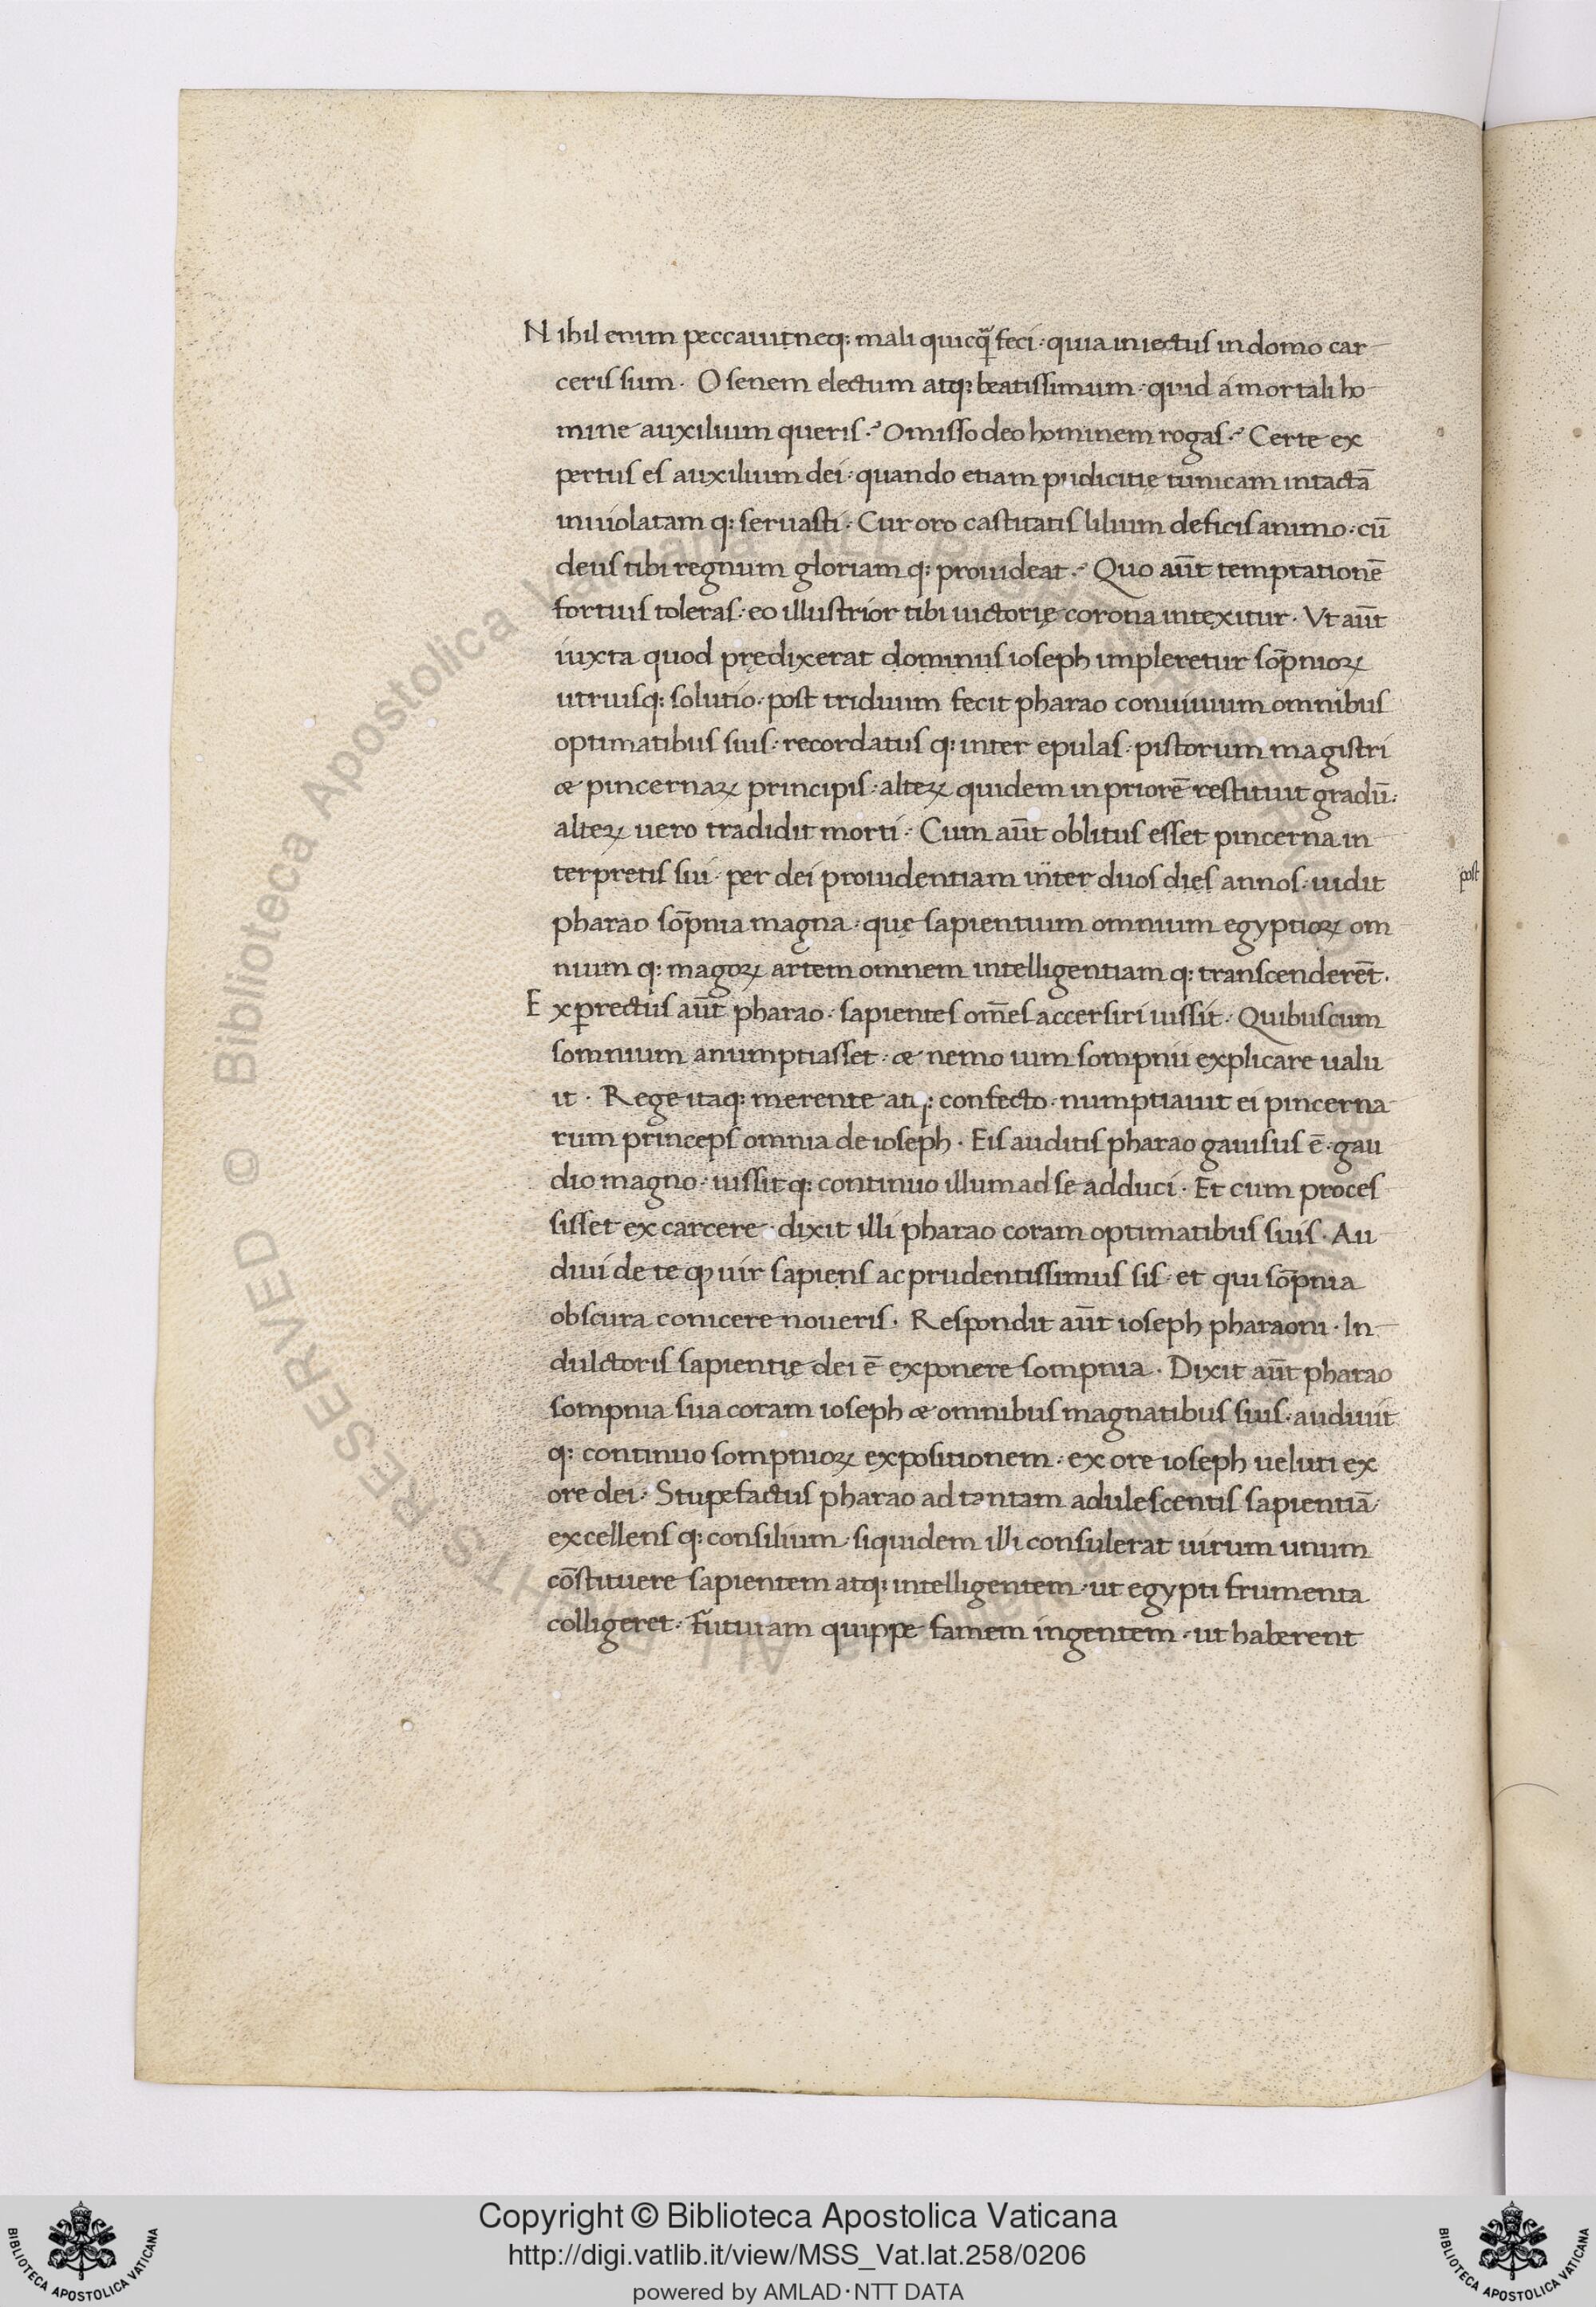 Nihil enim peccaui neq; mali quicq̃ feci· quia iniectus in domo car
ceris sum· O senem electum atq; beatissimum· quid a mortali ho
mine auxilium queris·? Omisso deo hominem rogas·? Certe ex
pertus es auxilium dei· quando etiam pudicitię tunicam intactā
inuiolatam q; seruasti· Cur oro castitatis lilium deficis animo· cū
deus tibi regnum gloriam q; prouideat·? Quo aūt temptationē
fortius toleras· eo illustrior tibi uictorię corona intexitur· Vt aūt
iuxta quod prędixerat dominus ioseph impleretur sōpnioꝝ
utriusq; solutio· post triduum fecit pharao conuiuium omnibus
optimatibus suis· recordatus q; inter epulas· pistorum magistri
æ pincernaꝝ principis· alteꝝ quidem in priorē restituit gradū·
alteꝝ uero tradidit morti· Cum aūt oblitus esset pincerna in
terpretis sui· per dei prouidentiam inter duos dies annos· uidit
post
pharao sōpnia magna· quę sapientium omnium egyptioꝝ om
nium q; magoꝝ artem omnem intelligentiam q; transcenderēt·
Exꝑrectus aūt pharao· sapientes om̄es accersiri iussit· Quibuscum
somnium anumptiasset· æ nemo uim sompnii explicare ualu
it· Rege itaq; merente atq; confecto· numptiauit ei pincerna
rum princeps omnia de ioseph· Eis auditis pharao gauisus ē· gau
dio magno· iussit q; continuo illum ad se adduci· Et cum proces
sisset ex carcere· dixit illi pharao coram optimatibus suis· Au
diui de te ꝙ uir sapiens ac prudentissimus sis· et qui sōpnia
obscura conicere noueris· Respondit aūt ioseph pharaoni· In
dulctoris sapientię dei ē exponere sompnia· Dixit aūt pharao
sompnia sua coram ioseph æ omnibus magnatibus suis· audiuit
q; continuo sompnioꝝ expositionem· ex ore ioseph ueluti ex
ore dei· Stupefactus pharao ad tantam adulescentis sapientiā·
excellens q; consilium· siquidem illi consulerat uirum unum
cōstituere sapientem atq; intelligentem· ut egypti frumenta
colligeret· Futuram quippe famem ingentem· ut haberent
© Biblioteca Apostolica Vaticana ALL RIGHTS RESERVED
Copyright © Biblioteca Apostolica Vaticana
http://digi.vatlib.it/view/MSS_Vat.lat.258/0206
powered by AMLAD·NTT DATA
BIBLIOTECA APOSTOLICA VATICANA
BIBLIOTECA APOSTOLICA VATICANA